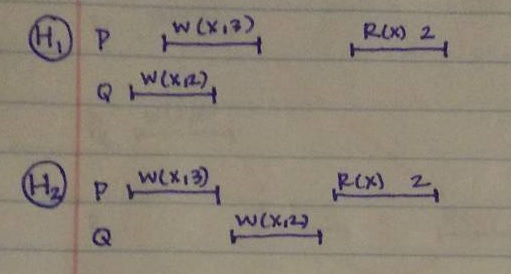 H1 P W(X,3) R(X) 2
Q W(X,2)
H2 P W(X,3) R(X) 2
Q W(X,2)